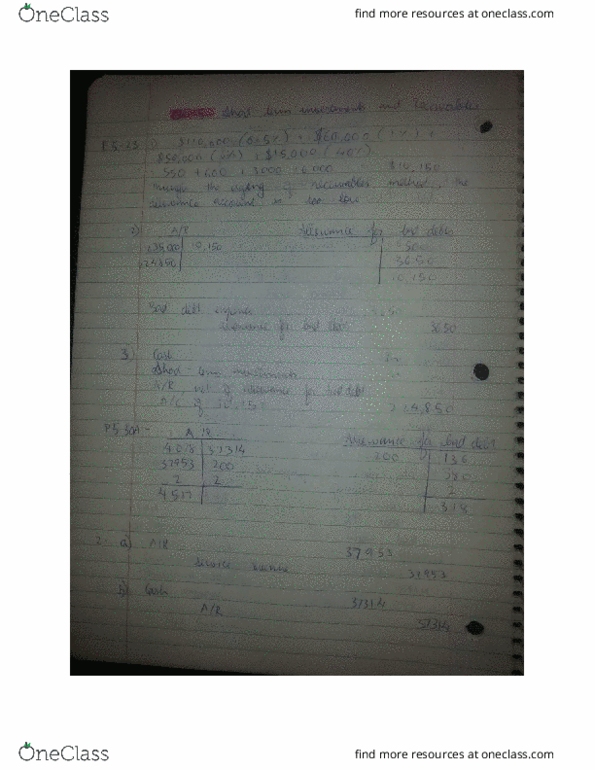 OneClass
find more resources at oneclass.com
Short term investments and Receivables
1) $110,000 (0.5%) + $60,000 (1%) +
$50,000 ( ) + $15,000 (40%)
550 + 600 + 3000 + 6000 $10,150
the aging of receivables method, the
allowance account is too low
2) A/R Allowance for bad debts
235000 10,150
3650
10,150
Bad debt expense
allowance for bad debts 3650
3) Cash
Short-term investments
A/R net of allowance for bad debt
224,850
A/R Allowance for bad debt
4,078 37314 200 136
37953 200 380
2 2 2
4517 318
2. a) A/R 37953
service revenue 37953
b) Cash 37314
A/R 37314
OneClass
find more resources at oneclass.com